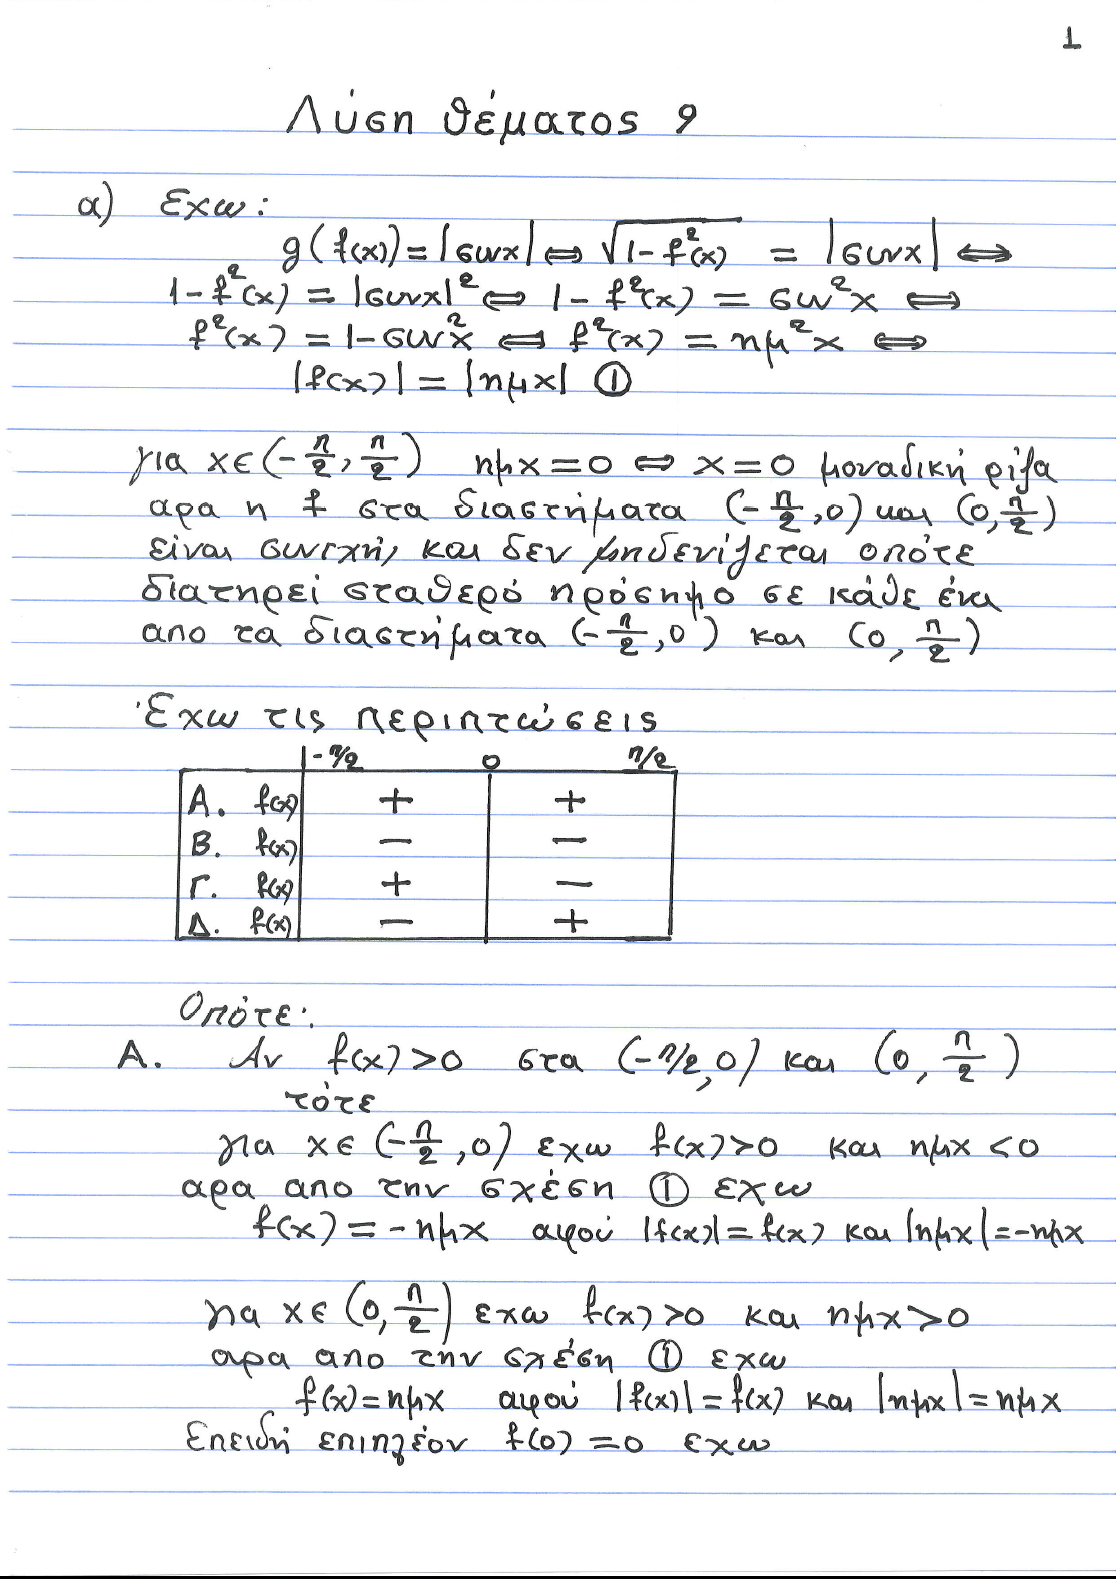 1
Λύση θέματος 9
α) Εχω:
g(f(x))=|συνx| ⇔ √(1-f²(x)) = |συνx| ⇔
1-f²(x) = |συνx|² ⇔ 1-f²(x) = συν²x ⇔
f²(x) = 1-συν²x ⇔ f²(x) = ημ²x ⇔
|f(x)| = |ημx| ①
για x∈(-π/2, π/2) ημx=0 ⇔ x=0 μοναδική ρίζα
αρα η f στα διαστήματα (-π/2,0) και (0,π/2)
είναι συνεχής και δεν μηδενίζεται οπότε
διατηρεί σταθερό πρόσημο σε κάθε ένα
απο τα διαστήματα (-π/2,0) και (0, π/2)
Έχω τις περιπτώσεις
-π/2 0 π/2
Α. f(x) + +
Β. f(x) − −
Γ. f(x) + −
Δ. f(x) − +
Οπότε:
Α. Αν f(x)>0 στα (-π/2,0) και (0, π/2)
τότε
για x∈(-π/2,0) εχω f(x)>0 και ημx<0
αρα απο την σχέση ① εχω
f(x) = -ημx αφού |f(x)|=f(x) και |ημx|=-ημx
για x∈(0,π/2) εχω f(x)>0 και ημx>0
αρα απο την σχέση ① εχω
f(x)=ημx αφού |f(x)|=f(x) και |ημx|=ημx
Επειδή επιπλέον f(0)=0 εχω